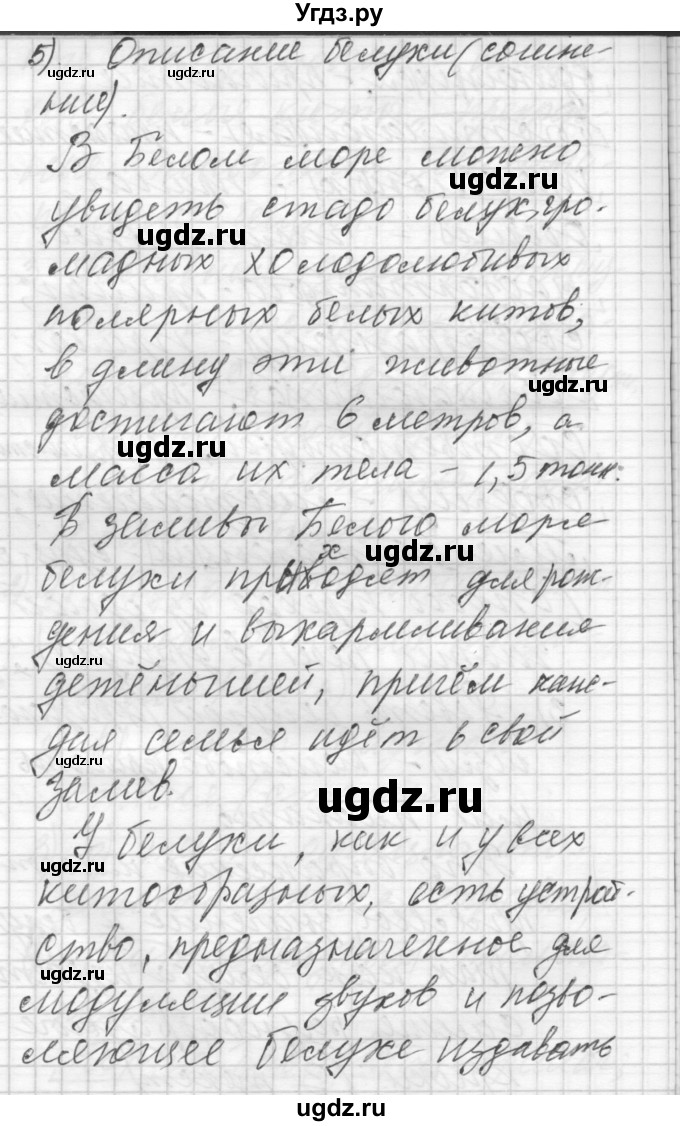 Угдз.ру
5). Описание белухи (сочине-
ugdz.ru
ние).
ugdz.ru
В Белом море можно
ugdz.ru
увидеть стадо белух, гро-
ugdz.ru
мадных холодолюбивых
полярных белых китов,
в длину эти животные
ugdz.ru
достигают 6 метров, а
ugdz.ru
масса их тела – 1,5 тонн.
В заливы Белого моря
ugdz.ru
белухи приходят для рож-
дения и выкармливания
ugdz.ru
детёнышей, причём каж-
дая семья идёт в свой
ugdz.ru
залив.
ugdz.ru
У белухи, как и у всех
ugdz.ru
китообразных, есть устрой-
ство, предназначенное для
ugdz.ru
модуляции звуков и позво-
ляющее белухе издавать
ugdz.ru
ugdz.ru